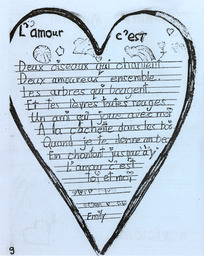 L'amour c'est
Deux oiseaux qui chantent
Deux amoureux ensemble.
Les arbres qui bougent
Et tes lèvres toutes rouges
Un ami qui joue avec moi
A la cachette dans les bois
Quand je te donne
En chantant jusqu'à
L'amour c'est
toi et moi
Emily
9